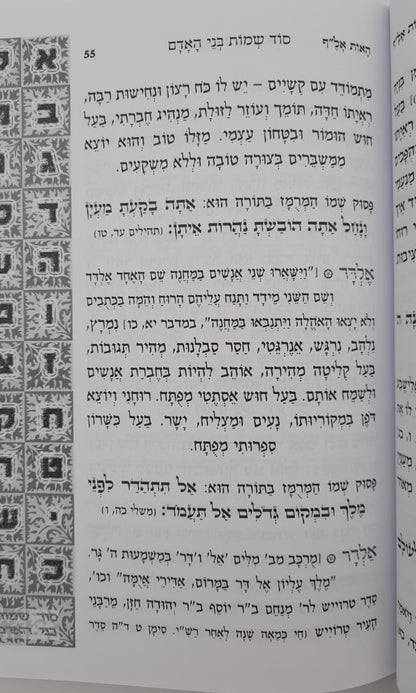 הָאוֹת אָלֶ"ף סוֹד שְׁמוֹת בְּנֵי הָאָדָם 55
מִתְמוֹדֵד עִם קְשָׁיִים – יֵשׁ לוֹ כֹּחַ רָצוֹן וּנְחִישׁוּת רַבָּה,
רְאִיָּתוֹ חַדָּה, תּוֹמֵךְ וְעוֹזֵר לַזּוּלַת, מַנְהִיג חֶבְרָתִי, בַּעַל
חוּשׁ הוּמוֹר וּבִטָּחוֹן עַצְמִי. מַזָּלוֹ טוֹב וְהוּא יוֹצֵא
מִמַּשְׁבֵּרִים בְּצוּרָה טוֹבָה וּלְלֹא מִשְׁקָעִים.
פָּסוּק שְׁמוֹ הַמְּרֻמָּז בַּתּוֹרָה הוּא: אַתָּה בָקַעְתָּ מַעְיָן
וָנָחַל אַתָּה הוֹבַשְׁתָּ נַהֲרוֹת אֵיתָן: (תהילים עד, טו)
אֶלְדָּד ["וַיִּשָּׁאֲרוּ שְׁנֵי אֲנָשִׁים בַּמַּחֲנֶה שֵׁם הָאֶחָד אֶלְדָּד
וְשֵׁם הַשֵּׁנִי מֵידָד וַתָּנַח עֲלֵיהֶם הָרוּחַ וְהֵמָּה בַּכְּתֻבִים
וְלֹא יָצְאוּ הָאֹהֱלָה וַיִּתְנַבְּאוּ בַּמַּחֲנֶה", במדבר יא, כו] נִמְרָץ,
נִלְהָב, נִרְגָּשׁ, אֵנֶרְגֵּטִי, חֲסַר סַבְלָנוּת, מְהִיר תְּגוּבוֹת,
בַּעַל קְלִיטָה מְהִירָה, אוֹהֵב לִהְיוֹת בְּחֶבְרַת אֲנָשִׁים
וּלְשַׂמֵּחַ אוֹתָם. בַּעַל חוּשׁ אֶסְתֶּטִי מְפֻתָּח. רוּחָנִי וְיוֹצֵא
דֹּפֶן בִּמְקוֹרִיּוּתוֹ, נָעִים וּמַצְלִיחַ, יָשָׁר. בַּעַל כִּשְׁרוֹן
סִפְרוּתִי מְפֻתָּח.
פָּסוּק שְׁמוֹ הַמְּרֻמָּז בַּתּוֹרָה הוּא: אַל תִּתְהַדַּר לִפְנֵי
מֶלֶךְ וּבִמְקוֹם גְּדֹלִים אַל תַּעֲמֹד: (משלי כה, ו)
אֶלְדָּר [מֻרְכָּב מב' מִלִּים 'אֵל' וּ'דָר' בְּמַשְׁמָעוּת ה' גָּר.
"מֶלֶךְ עֶלְיוֹן אֵל דָּר בַּמָּרוֹם, אַדִּירֵי אֲיֻמָּה" וכו',
סֵדֶר טְרוֹיֶישׁ לר' מְנַחֵם ב"ר יוֹסֵף ב"ר יְהוּדָה חַזָּן, מֵרַבָּנֵי
הָעִיר טְרוֹיֶישׁ (חַי כְּמֵאָה שָׁנָה לְאַחַר רַשִׁ"י. סִימָן ט ד"ה סֵדֶר
א
ב
ג
ד
ה
ו
ז
ח
ט
י
כ